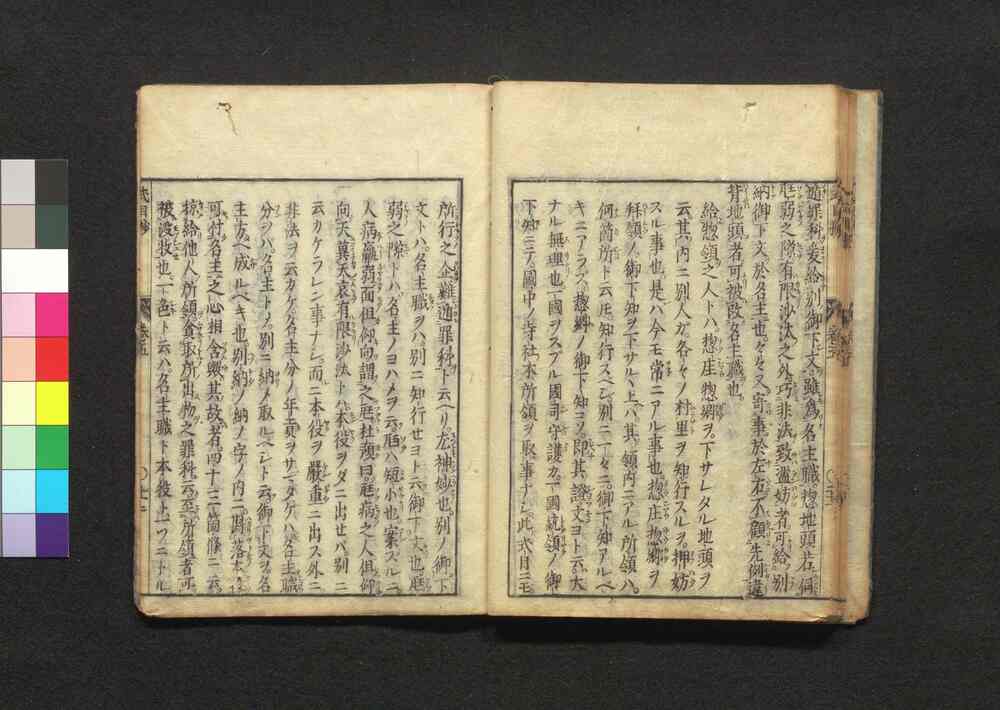 遁罪科爰給別御下文雖為名主職惣地頭若伺
尫弱之隙有限沙汰之外巧非法致濫妨者可給別
納御下文於名主也名主又寄事於左右不顧先例違
背地頭者可被改名主職也
給惣領之人トハ惣庄惣郷ヲ下サレタル地頭ヲ
云其内ニ別人ガ各々ノ村里ヲ知行スルヲ押妨
スル事也是ハ今モ常ニアル事也惣庄惣郷ヲ
拜領ノ御下知ヲ下サルヽ上ハ其領内ニアル所領ハ
何箇所ト云圧知行スベシ別ニ下々ニ御下知アルベ
キニアラズ惣郷ノ御下知コソ即其證文ヨト云大
ナル無理也一國ヲスブル國司守護カ一國統領ノ御
下知ニテ國中ノ寺社本所領ヲ取事ナシ此式目ニモ
所行之企難遁罪科ト云ヘリ左神妙也別ノ御下
文トハ名主職ヲハ別ニ知行せヨト云御下文也尫
弱之隙トハ名主ノヨハメヲ云尫ハ短小也案スルニ
人病羸弱面但仰向謂之尫杜預曰尫病之人但仰
向天冀天哀有限沙法トハ本役ヲダニ出せバ別ニ
云カケラレン事ナシ而ニ本役ヲ嚴重ニ出ス外ニ
非法ヲ云カケ名主分ノ年貢ヲサマタケハ名主職
分ヲハ名主トメ別ニ納メ取ルベシト云御下文ヲ名
主方ヘ成ルベキ也別納ノ納ノ字ノ内ニ
可付名主之心相含歟其故者四十三箇條ニ云
掠給他人所領貪取所出物之罪科云至所領者可
被没收也下色ト云ハ名主職ト本役ト一ツニナル
式目抄
卷五